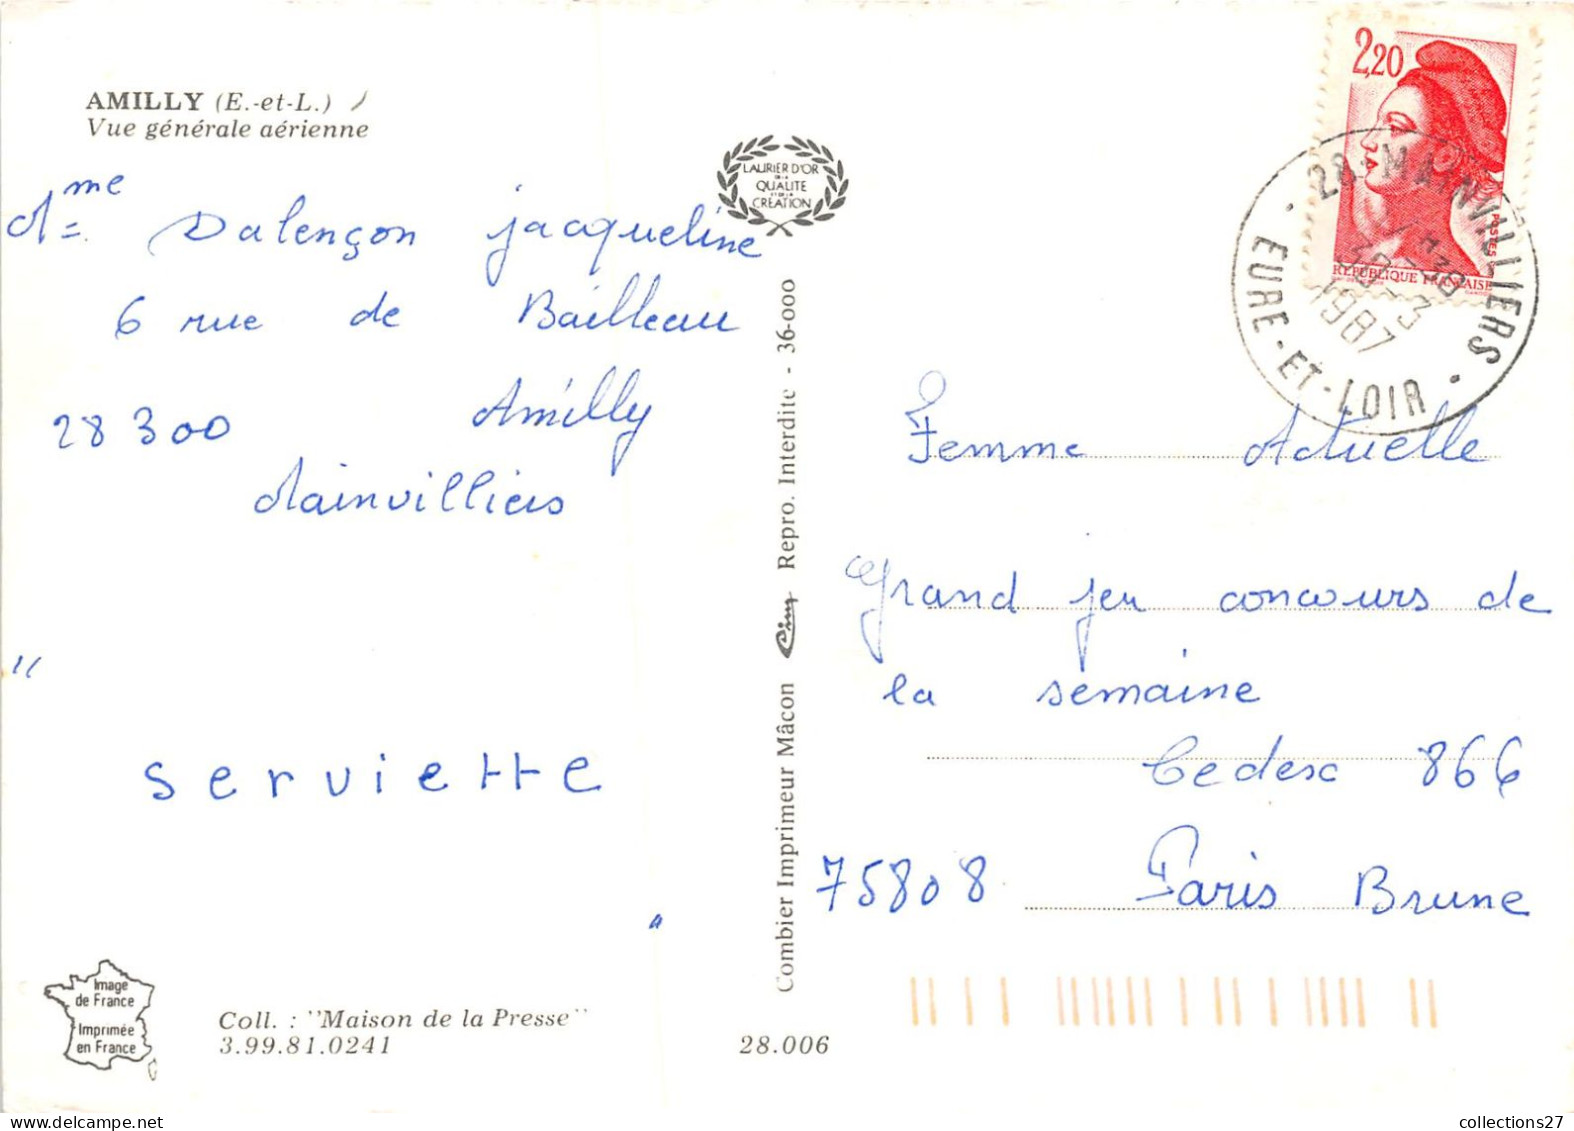 AMILLY (E.-et-L.)
Vue générale aérienne
Mme Dalençon jacqueline
6 rue de Bailleau
28300 Amilly
Mainvilliers
"
serviette
"
Image
de France
Imprimée
en France
Coll. : "Maison de la Presse"
3.99.81.0241
28.006
LAURIER D'OR
DE LA
QUALITE
ET DE LA
CRÉATION
Combier Imprimeur Mâcon Cim Repro. Interdite - 36-000
2,20
POSTES
REPUBLIQUE FRANÇAISE
28 - MAINVILLIERS
EURE-ET-LOIR
1987
Femme Actuelle
Grand jeu concours de
la semaine
Cedex 866
75808 Paris Brune
collections27